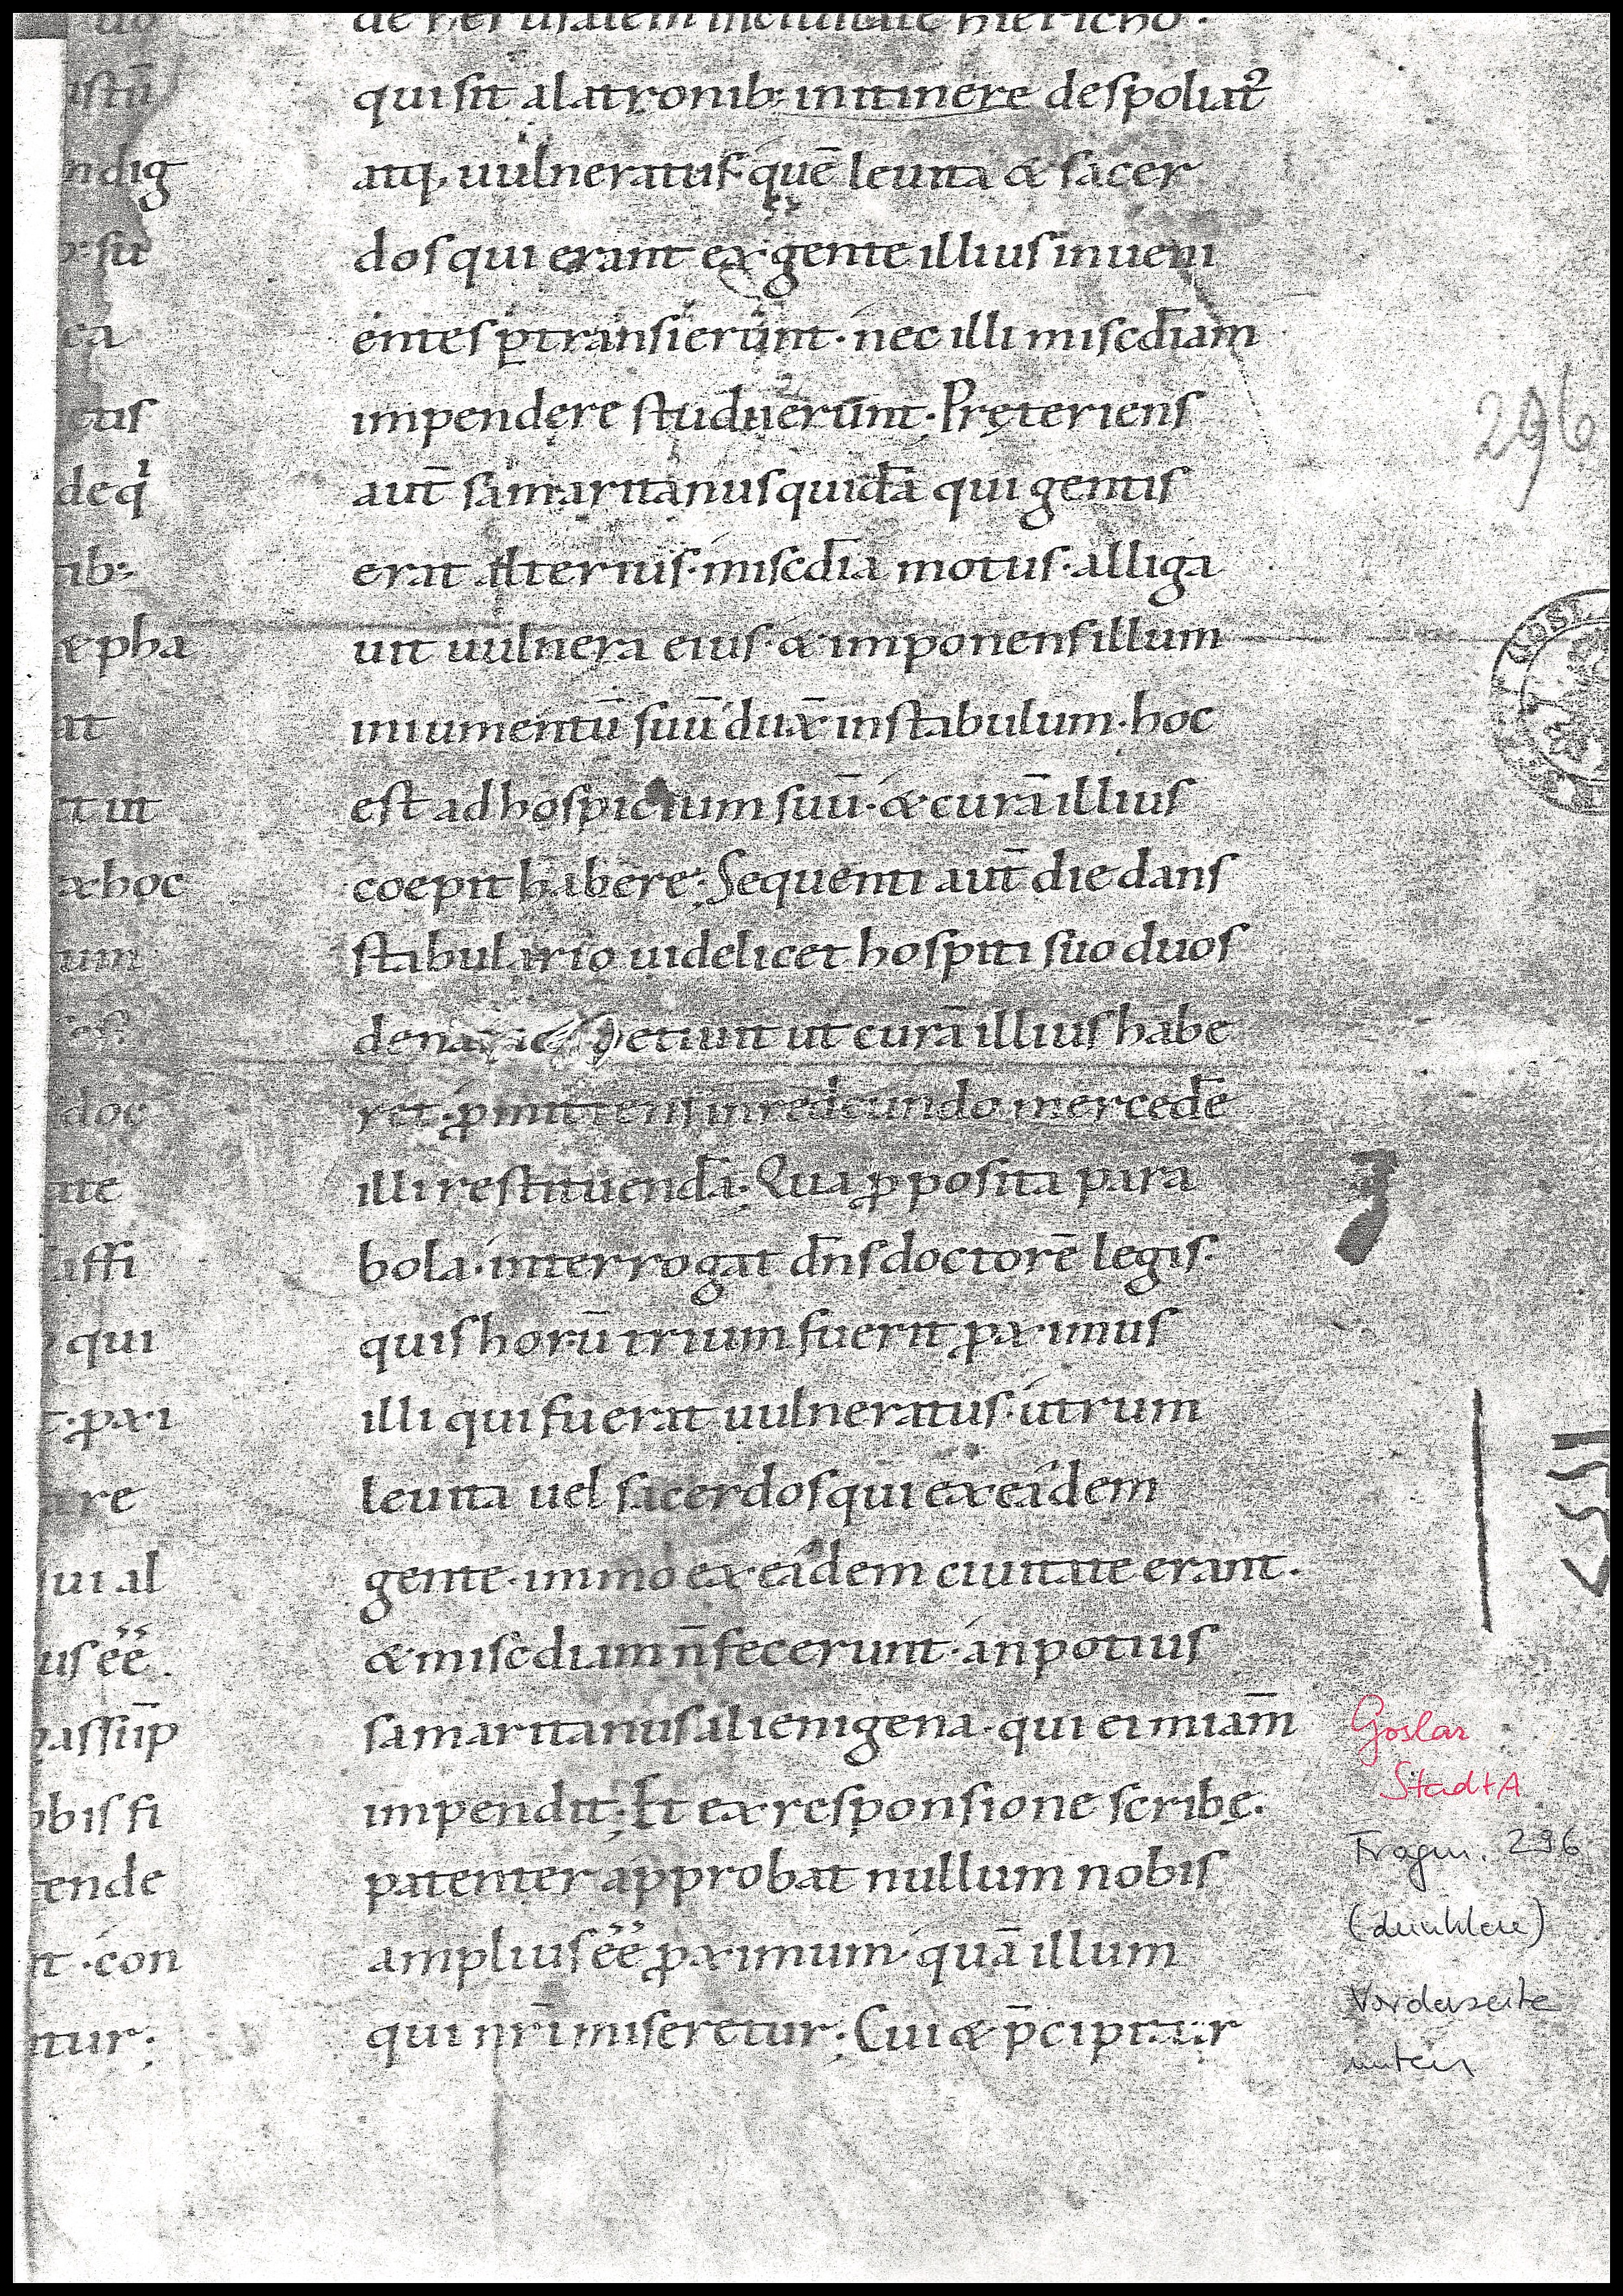 ustū
ndig
b: su
ca
ctis
de qⁱ
tib:
& pha
at
et ut
ax hoc
um
doc
ate
affi
qui
t · ꝓxi
are
sui al
us ēē.
passiīp
obis fi
tende
nt · con
ntur:
de hierusalem inciuitate hiericho ·
qui sit alatronib: initinere despoliat᷒
atq, uulneratus · quē leuita & sacer
dos qui erant ex gente illius inueni
entes ꝑtransierunt · nec illi miscd̄iam
impendere studuerunt · Pręteriens
aut̄ samaritanus quidā qui gentis
erat alterius · miscd̄ia motus · alliga
uit uulnera eius · & imponens illum
iniumentū suū dux̄ instabulum · hoc
est ad hospicium suū · & curā illius
coepit habere: Sequenti aut̄ die dans
stabulario uidelicet hospiti suo duos
petiuit ut curā illius habe
ret · ꝓmittens inredeundo mercedē
illi restituendā. Qua ꝓposita para
bola · interrogat dn̄s doctorē legis.
quis horū trium fuerit ꝓximus
illi qui fuerat uulneratus · utrum
leuita uel sacerdos qui ex eadem
gente · immo ex eadem ciuitate erant.
& miscdiam n̄ fecerunt · an potius
samaritanus alienigena · qui ei miam̄
impendit; Et ex responsione scribę.
patenter approbat nullum nobis
amplius ēē ꝓximum · quā illum
qui nr̄i miseretur; Cui & p̄cipitur
296
Goslar
StadtA
Fragm. 296
(dunklere)
Vorderseite
unten